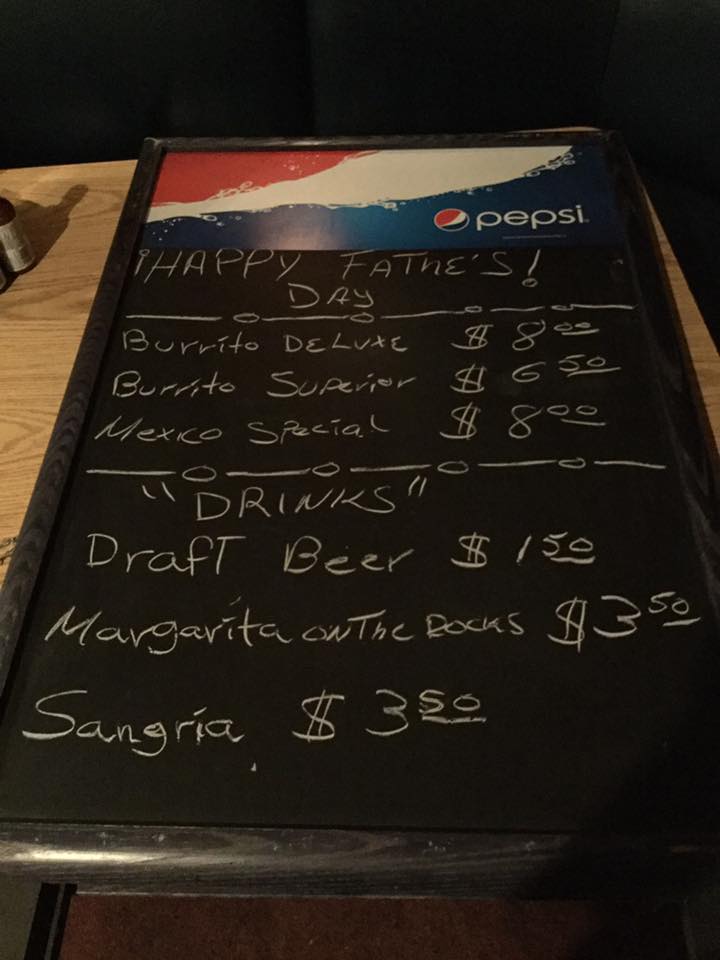 pepsi
¡HAPPY FATHE'S!
DAY
Burrito DELUXE $ 8 00
Burrito Superior $ 6 50
Mexico Special $ 8 00
"DRINKS"
Draft Beer $ 1 50
Margarita on The Rocks $ 3 50
Sangría $ 3 50